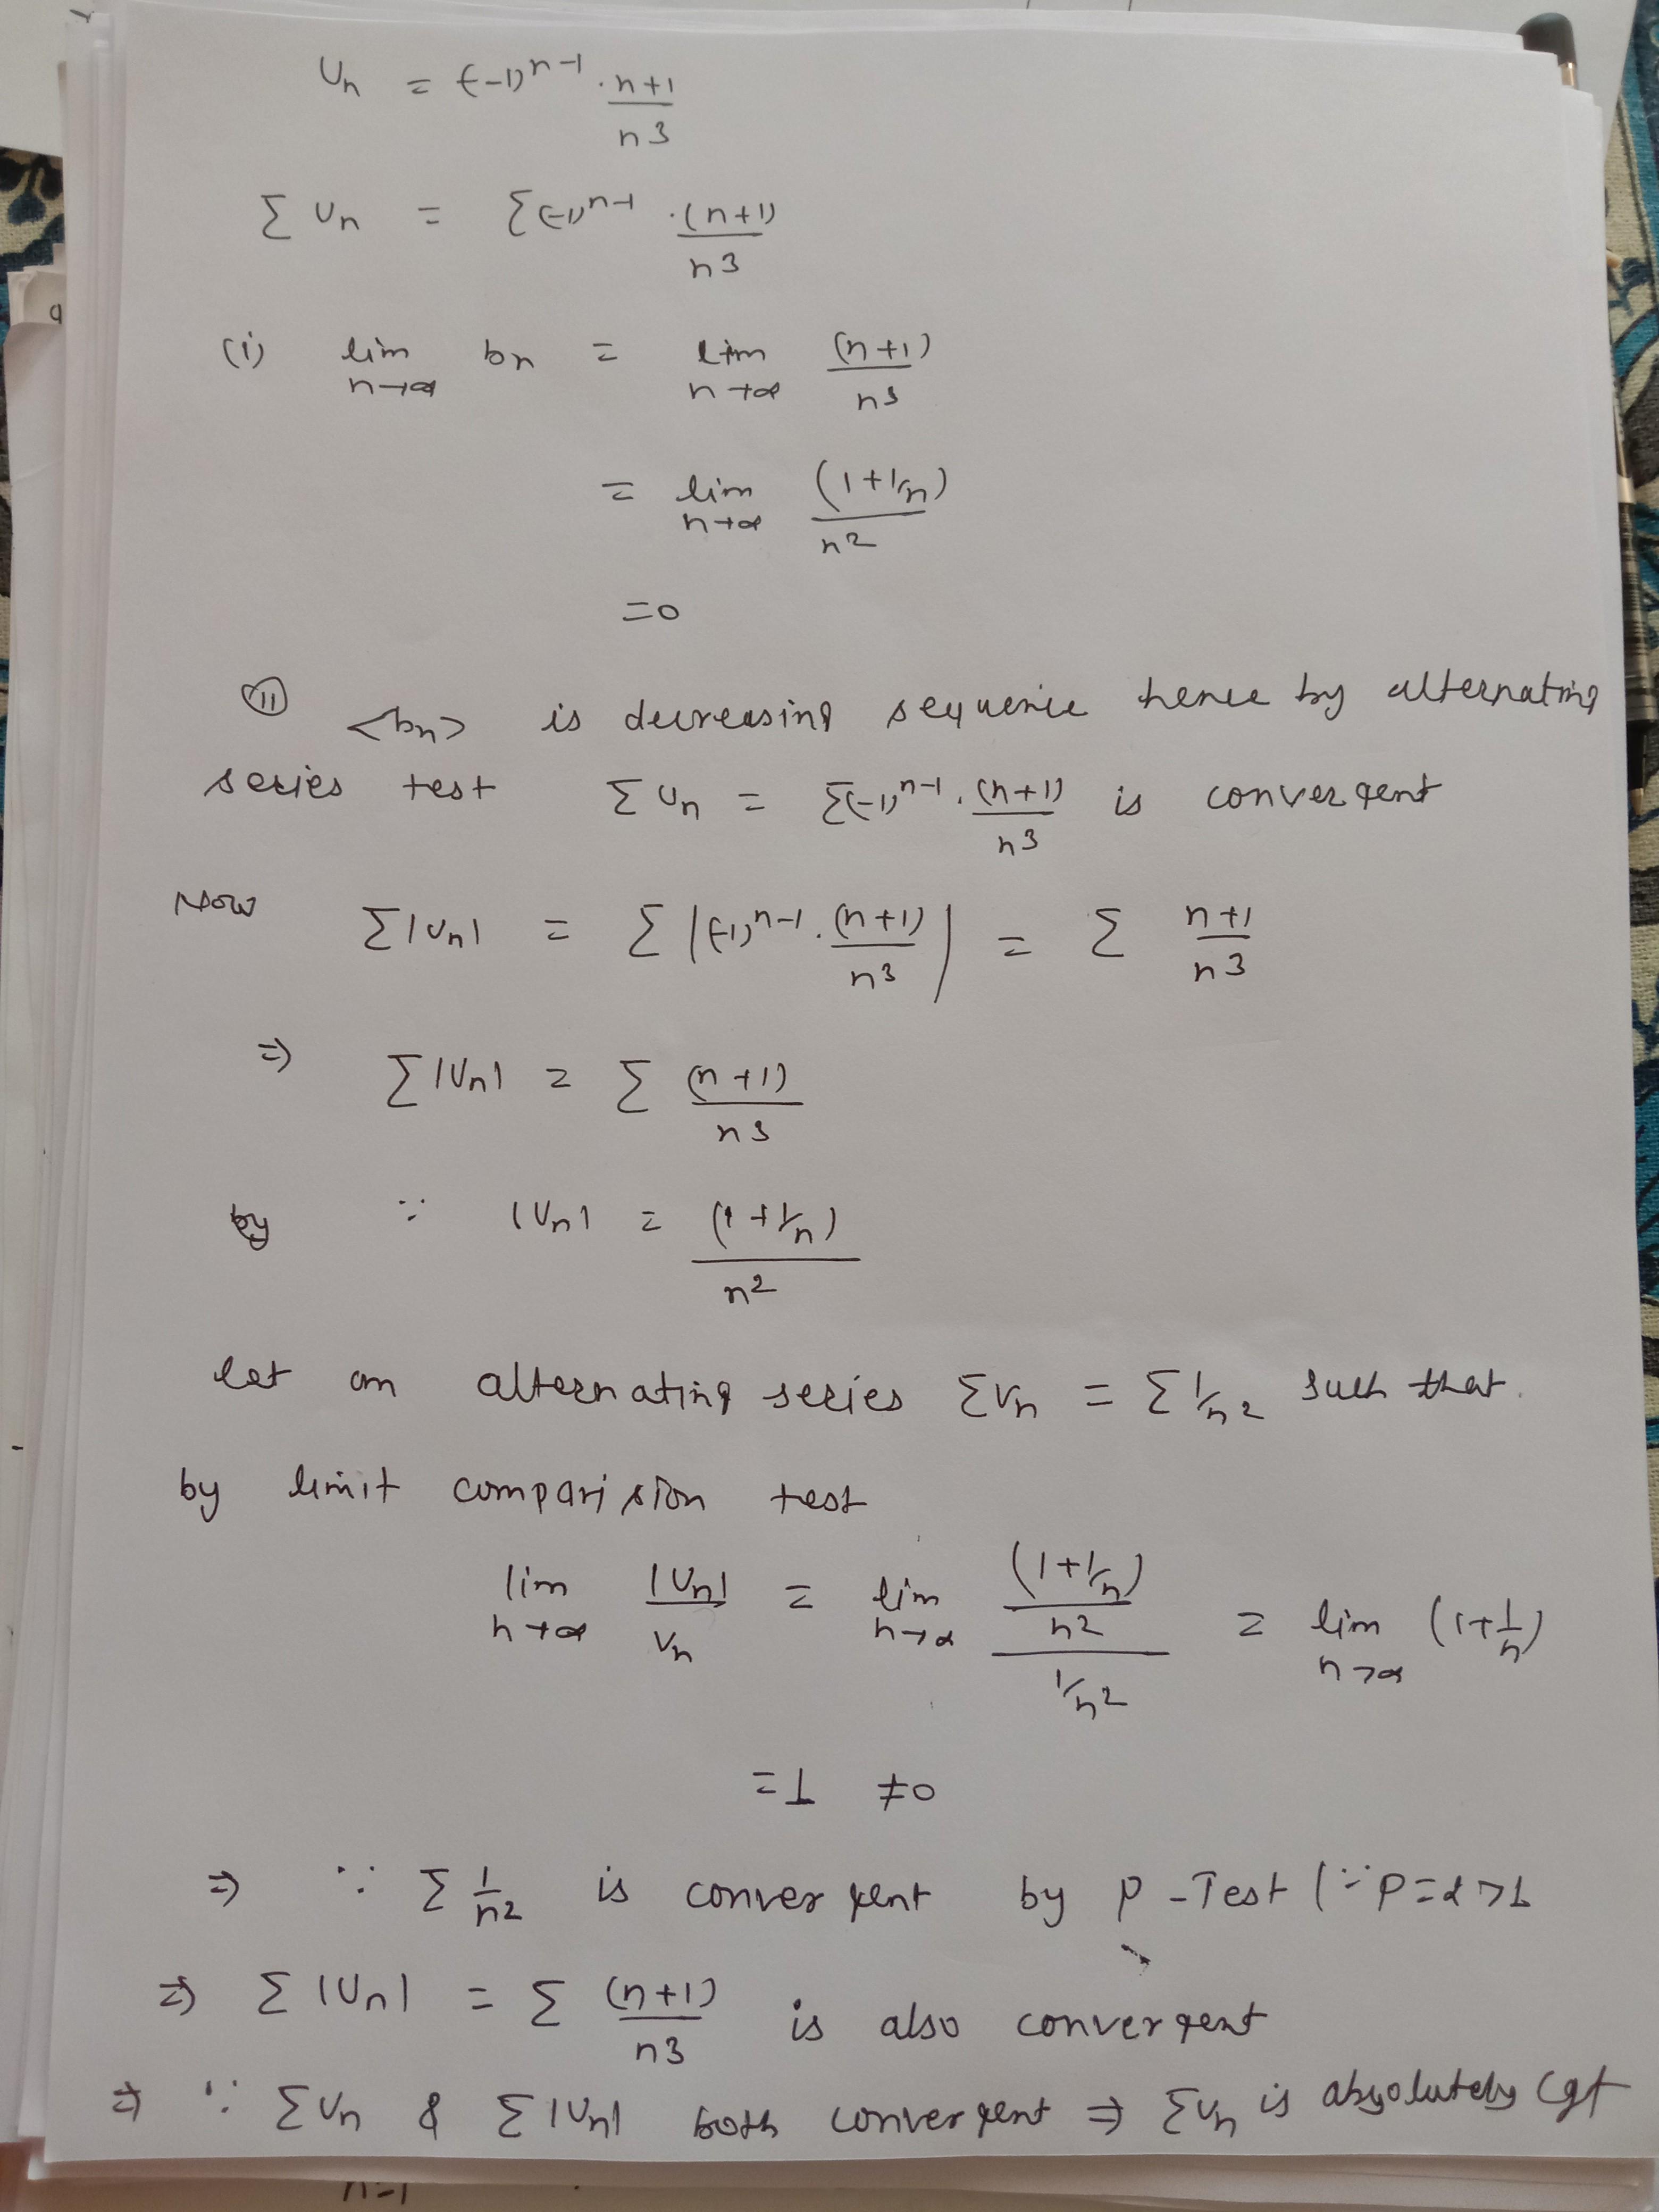 Un = (-1)^{n-1} · \frac{n+1}{n3}
Σ Un = Σ(-1)^{n-1} · \frac{(n+1)}{n3}
(i) lim_{n→∞} bn = lim_{n→∞} \frac{(n+1)}{n3}
= lim_{n→∞} \frac{(1+1/n)}{n2}
=0
(ii) <bn> is decreasing sequence hence by alternating
series test Σ Un = Σ(-1)^{n-1} · \frac{(n+1)}{n3} is convergent
Now Σ|Un| = Σ |(-1)^{n-1} · \frac{(n+1)}{n3}| = Σ \frac{n+1}{n3}
⇒ Σ|Un| = Σ \frac{(n+1)}{n3}
by ∵ |Un| = \frac{(1+1/n)}{n2}
let an alternating series Σvn = Σ1/n2 such that.
by limit comparision test
lim_{n→∞} \frac{|Un|}{vn} = lim_{n→∞} \frac{\frac{(1+1/n)}{n2}}{1/n2} = lim_{n→∞} (1+\frac{1}{n})
=1 ≠0
⇒ ∵ Σ \frac{1}{n2} is convergent by P-Test (∵P=2>1
⇒ Σ|Un| = Σ \frac{(n+1)}{n3} is also convergent
⇒ ∵ ΣUn & Σ|Un| both convergent ⇒ ΣUn is absolutely cgt
n=1